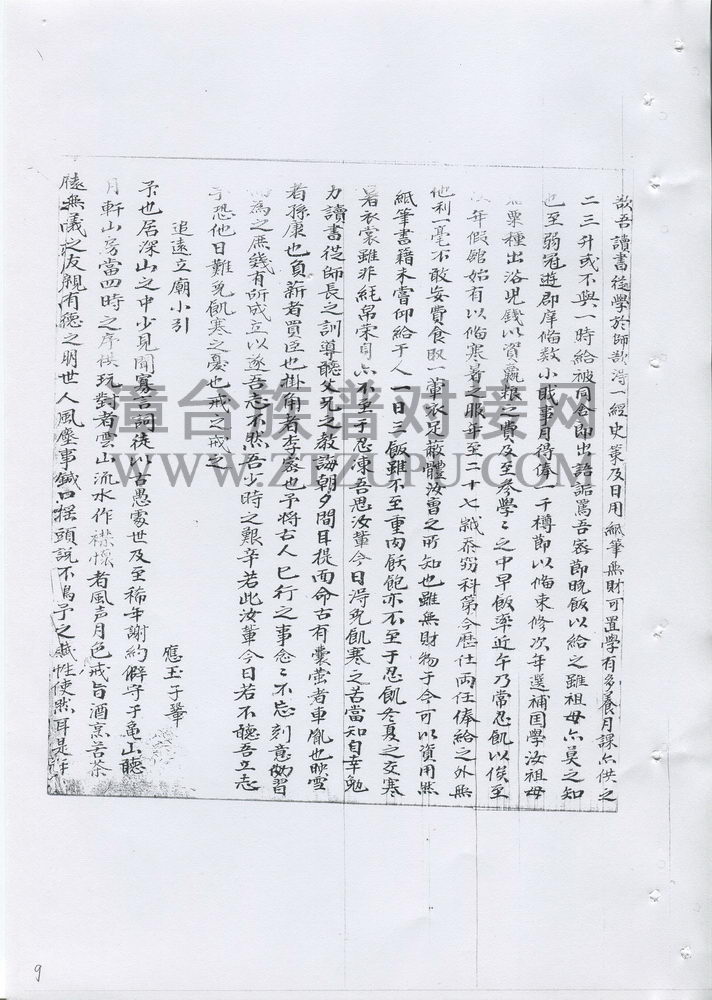 歆吾讀書從學於師歆得一經史策及日用紙筆無財可置學有多養月課六供之
二三升或不與一時給被同舍即出詬罵吾密節晚飯以給之雖祖母六莫之知
也至弱冠遊郡庠偹数小職事月得俸一千樽節以偹束修次年選補国學汝祖母
粟種出浴児錢以資之費及至参學之中早飯率近午乃常忍飢以俟至
年假館始有以偹寒暑之服年至二十七忝窃科第今歷仕両任俸給之外無
他利一毫不敢妄費食取一葷衣足蔽體汝曹之所知也雖無財物于今可以資用然
紙筆書籍未嘗仰給于人一日三飯雖不至重肉飫飽亦不至于忍飢冬夏之交寒
暑衣裳雖非紈帛六不至于忍凍吾思汝輩今日得免飢寒之苦當知自幸勉
力讀書從師長之訓導聽父兄之教誨朝夕間耳提而命古有囊萤者車胤也映雪
者孫康也負薪者買臣也掛角者李密也予將古人已行之事念〻不忘刻意効習
為之庶幾有所成立以遂吾志不然吾少時之艱辛若此汝輩今日若不聽吾立志
恐他日難免飢寒之憂也戒之戒之
追遠立廟小引
應玉子軰
予也居深山之中少見聞寡言詞徒以古愚處世及至稀年謝約僻守于龜山聽
月軒山房當四時之序棋玩對者雲山流水作襟懷者風声月色戒旨酒烹苦茶
無㬢之友親有德之明世人風塵事緘口摇頭説不為予之性使然耳是年
WWW.ZTZUPU.COM
漳台族谱对接网
9